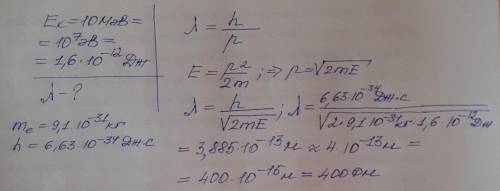 Eₖ = 10 МэВ =
= 10⁷ эВ =
= 1,6·10⁻¹² Дж
λ - ?
mₑ = 9,1·10⁻³¹ кг
h = 6,63·10⁻³⁴ Дж·с
λ = h/p
E = p²/2m ; ⇒ p = √2mE
λ = h/√2mE ; λ = 6,63·10⁻³⁴ Дж·с/√2·9,1·10⁻³¹кг·1,6·10⁻¹² Дж
= 3,885·10⁻¹³ м ≈ 4·10⁻¹³ м =
= 400·10⁻¹⁵ м = 400 Фм